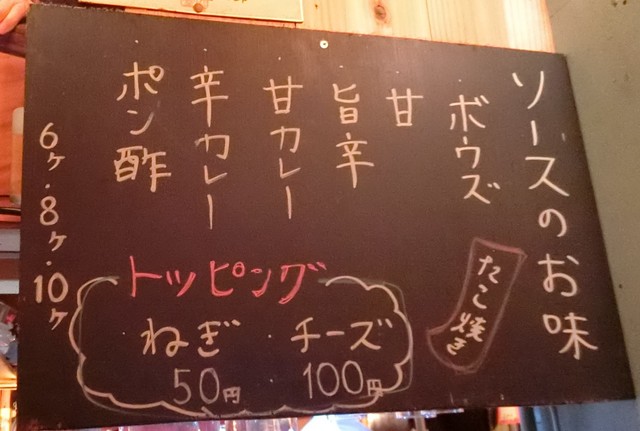 ソースのお味
たこ焼き
ボウズ
甘
旨辛
甘カレー
辛カレー
ポン酢
6ヶ・8ヶ・10ヶ
トッピング
ねぎ
50円
チーズ
100円